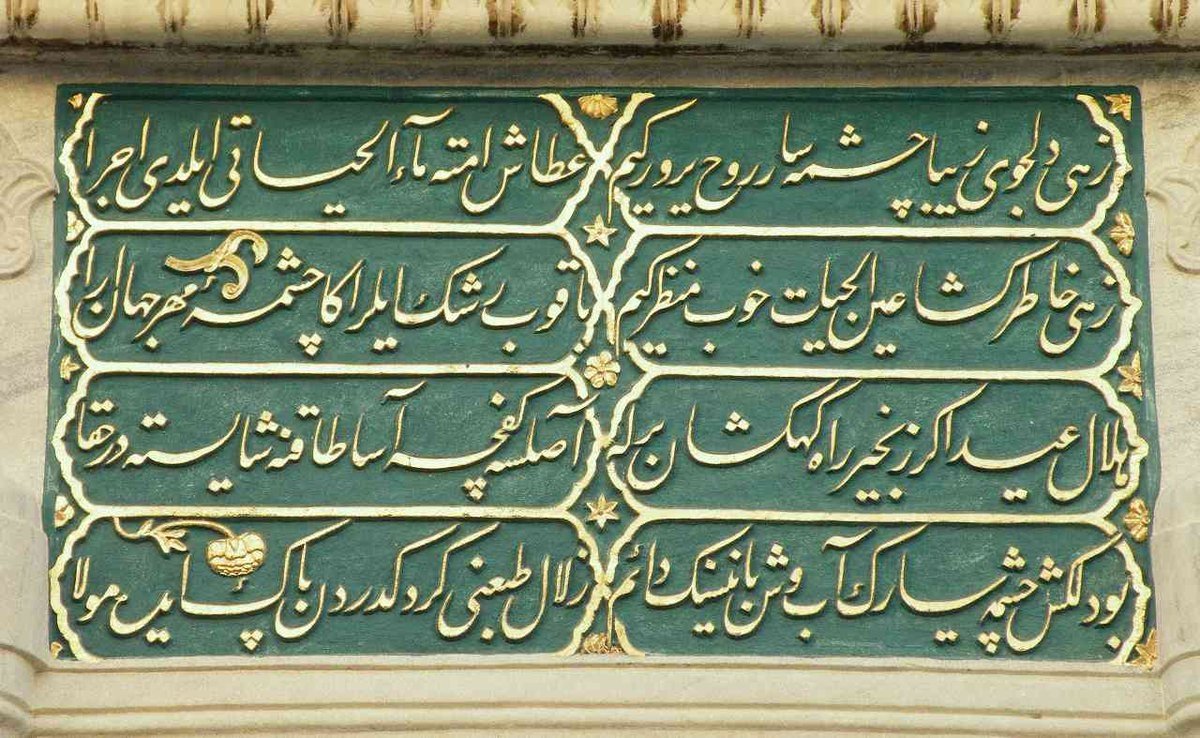 زهی دلجوی زیبا چشمه سار روح پرور کیم
عطاش امته ماء الحیاتی ایلدی اجرا
زهی خاطر کشا عین الحیات خوب منظر کیم
باقوب رشک ایلر اکا چشمهٔ مهر جهان ارا
هلال عید اکر زنجیر راه کهکشان برله
آصلسه کفچه آسا طاقنه شایسته در حقا
بو دلکش چشمه پاک آب وش بانینک دائم
زلال طبعنی کرد کدردن پاک ایده مولا